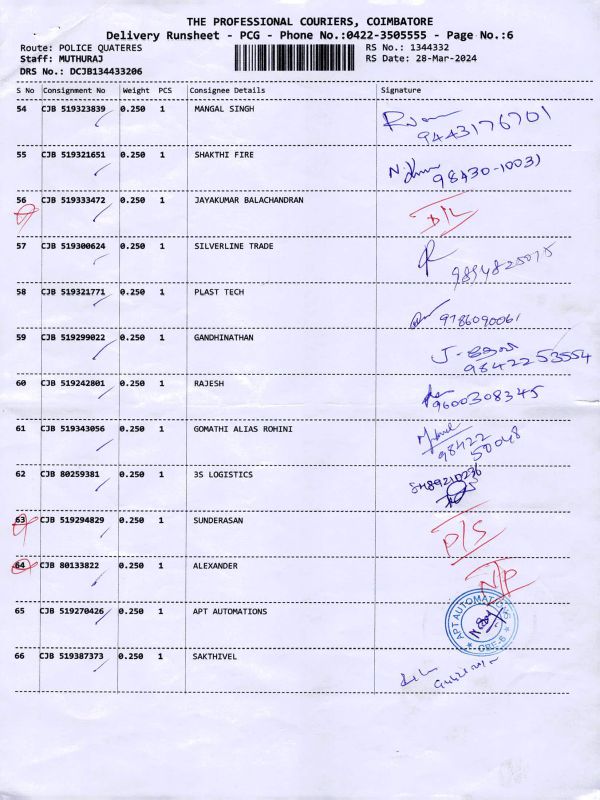 THE PROFESSIONAL COURIERS, COIMBATORE
Delivery Runsheet - PCG - Phone No.:0422-3505555 - Page No.:6
Route: POLICE QUATERES RS No.: 1344332
Staff: MUTHURAJ RS Date: 28-Mar-2024
DRS No.: DCJB134433206
S No Consignment No Weight PCS Consignee Details Signature
54 CJB 519323839 0.250 1 MANGAL SINGH
9443176701
55 CJB 519321651 0.250 1 SHAKTHI FIRE
98430-10031
56 CJB 519333472 0.250 1 JAYAKUMAR BALACHANDRAN D/L
57 CJB 519300624 0.250 1 SILVERLINE TRADE
9894825075
58 CJB 519321771 0.250 1 PLAST TECH
9786090061
59 CJB 519299022 0.250 1 GANDHINATHAN
9842253554
60 CJB 519242801 0.250 1 RAJESH
9600308345
61 CJB 519343056 0.250 1 GOMATHI ALIAS ROHINI
98422
50048
62 CJB 80259381 0.250 1 3S LOGISTICS
63 CJB 519294829 0.250 1 SUNDERASAN P/S
64 CJB 80133822 0.250 1 ALEXANDER N/P
65 CJB 519270426 0.250 1 APT AUTOMATIONS APT AUTOMATIONS CBE-6
66 CJB 519387373 0.250 1 SAKTHIVEL